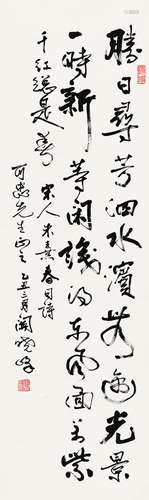 勝日尋芳泗水濱無邊光景
一時新等閒識得東風面萬紫
千紅總是春 宋人朱熹春日詩
可忠先生正之 乙丑三月